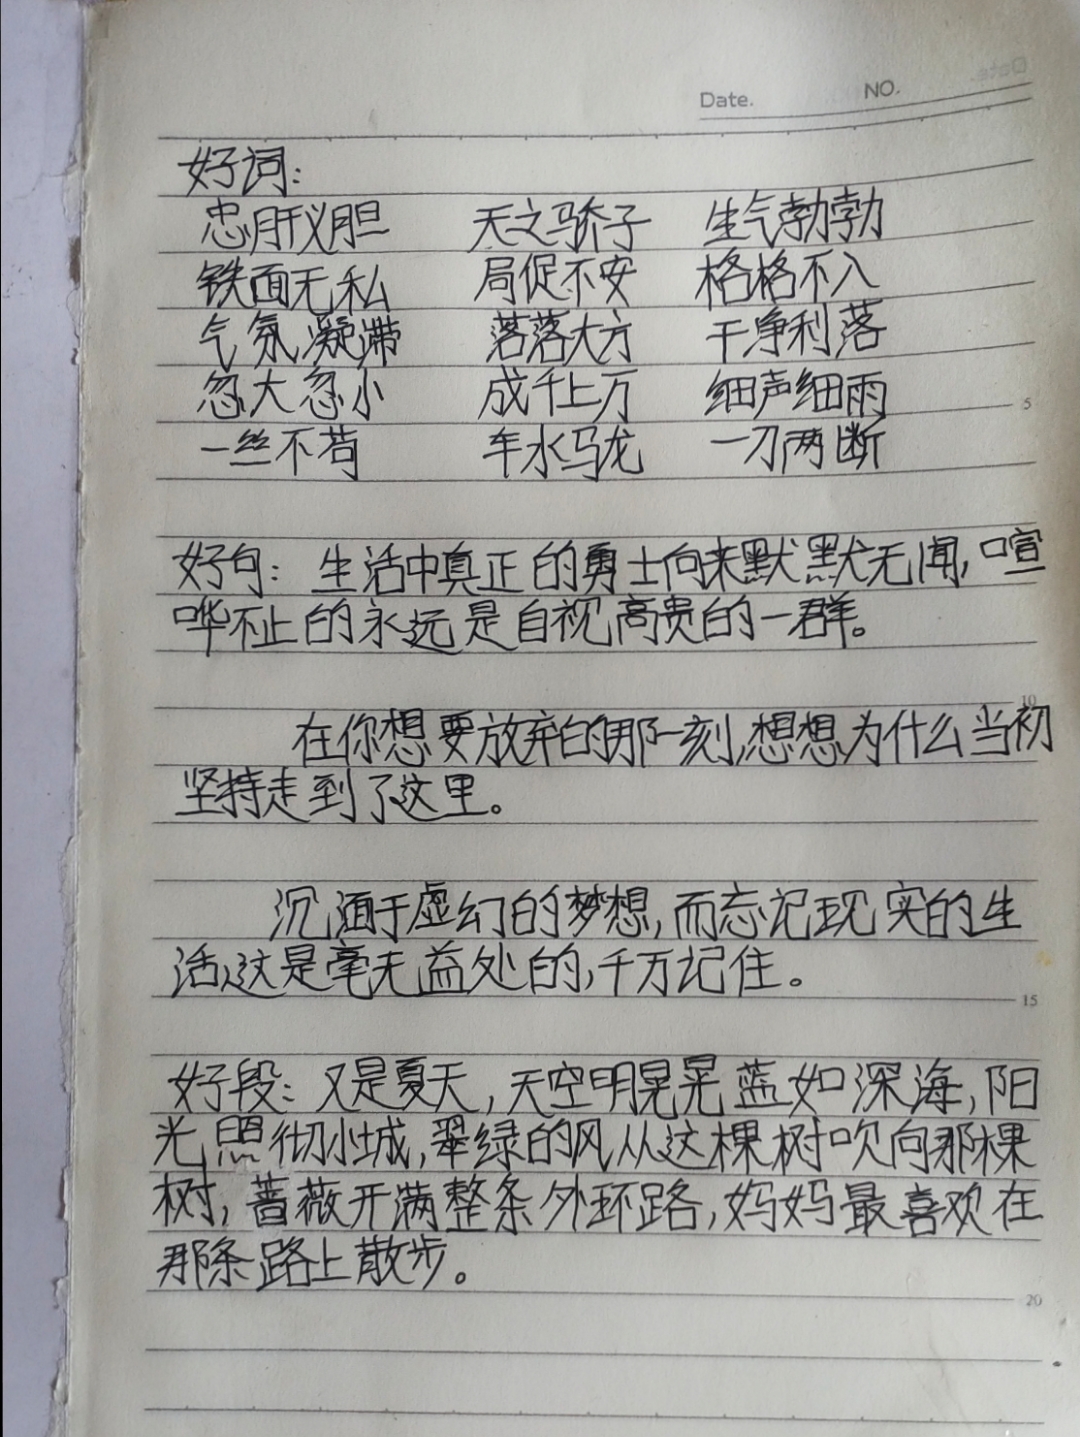 Date. NO.
好词：
忠肝义胆 天之骄子 生气勃勃
铁面无私 局促不安 格格不入
气氛凝滞 落落大方 干净利落
忽大忽小 成千上万 细声细雨
5
一丝不苟 车水马龙 一刀两断
好句：生活中真正的勇士向来默默无闻，喧
哗不止的永远是自视高贵的一群。
10
在你想要放弃的那一刻，想想为什么当初
坚持走到了这里。
沉湎于虚幻的梦想，而忘记现实的生
活，这是毫无益处的，千万记住。
15
好段：又是夏天，天空明晃晃蓝如深海，阳
光照彻小城，翠绿的风从这棵树吹向那棵
树，蔷薇开满整条外环路，妈妈最喜欢在
那条路上散步。
20